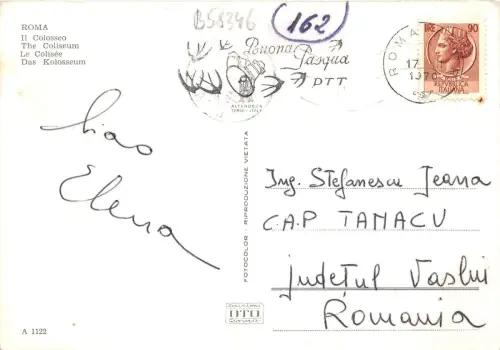 ROMA
Il Colosseo
The Coliseum
Le Colisée
Das Kolosseum
B58346
162
Buona
Pasqua
PTT
ROMA
17
1970
LIRE 90
REPUBBLICA
ITALIANA
Ciao
Elena
FOTOCOLOR - RIPRODUZIONE VIETATA
Ing. Stefanescu Jeana
C.A.P TANACU
Judetul Vaslui
Romania
OTO
A 1122